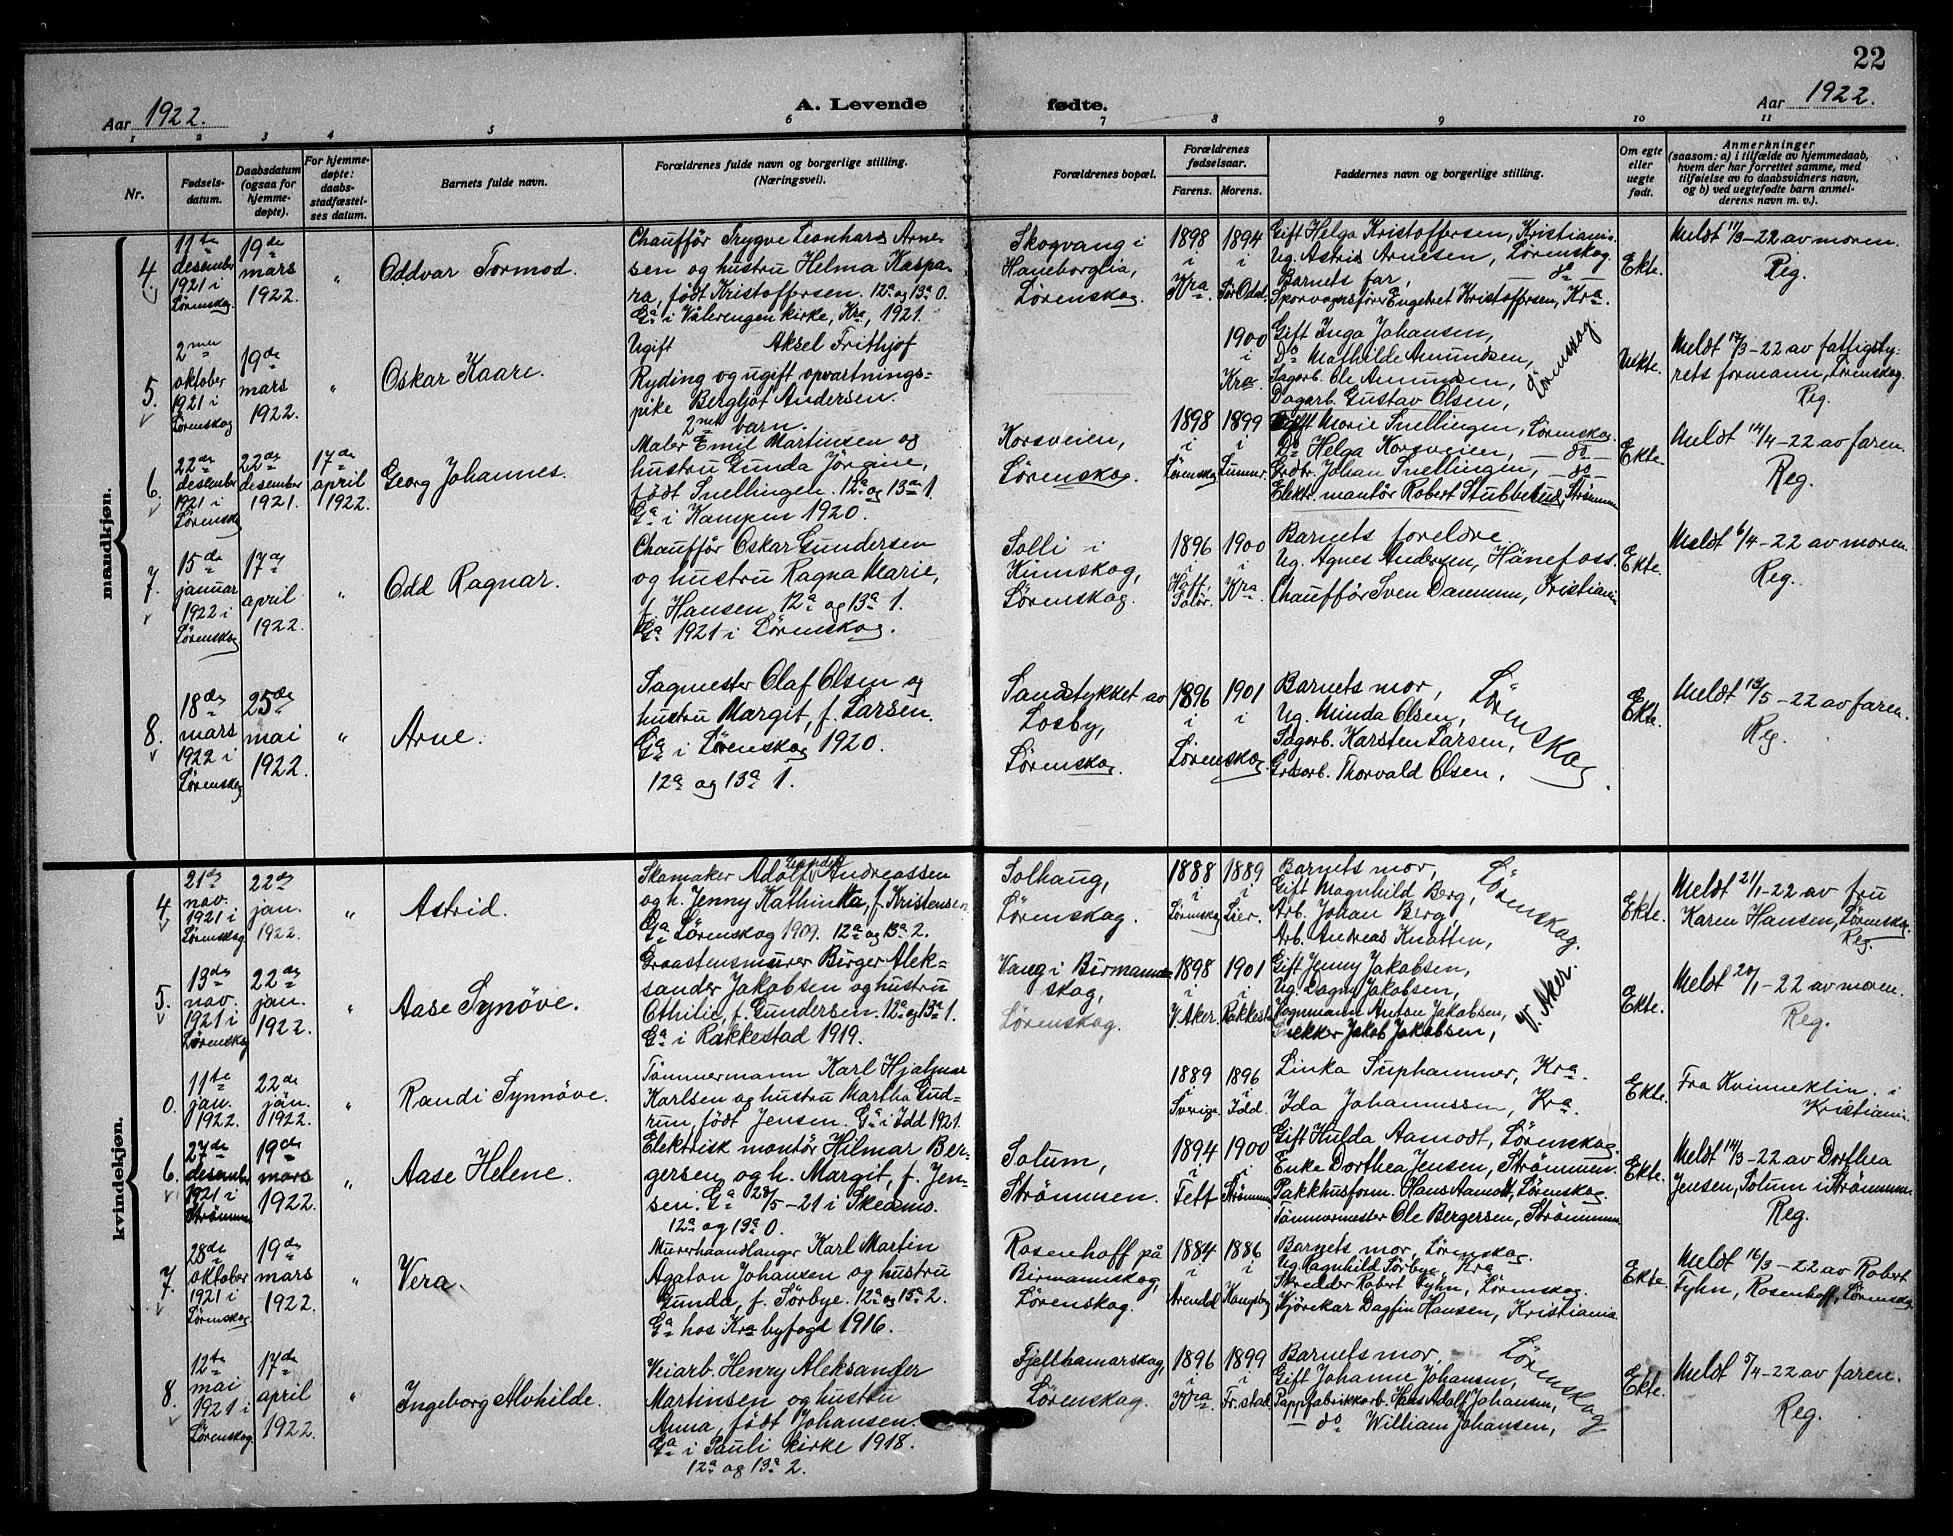 22
Aar 1922.
A. Levende fødte.
Aar 1922.
1 2 3 4 5 6 7 8 9 10 11
Nr.
Fødsels-
datum.
Daabsdatum
(ogsaa for
hjemme-
døpte).
For hjemme-
døpte:
daabs-
stadfæstel-
ses datum.
Barnets fulde navn.
Forældrenes fulde navn og borgerlige stilling.
(Næringsvei).
Forældrenes bopæl.
Forældrenes
fødselsaar.
Farens. Morens.
Faddernes navn og borgerlige stilling.
Om egte
eller
uegte
født.
Anmerkninger
(saasom: a) i tilfælde av hjemmedaab,
hvem der har forrettet samme, med
tilføielse av to daabsvidners navn,
og b) ved uegtefødte barn anmel-
derens navn m. v.).
mandkjøn.
4.
11te
desember
1921 i
Lørenskog.
19de
mars
1922.
"
Oddvar Tormod.
Chaufför Trygve Leonhard Arne-
sen og hustru Helma Kaspa-
ra, født Kristoffersen. 12a og 13a 0.
Ga i Vålerengen kirke, Kra, 1921.
Skogvang i
Haneborglia,
Lørenskog.
1898
i
Kra.
1894
i
Sør Odal.
Gift Helga Kristoffersen, Kristiania.
Ug. Astrid Arnesen, Lørenskog.
Barnets far, — do —
Sporvognsfører Engebret Kristoffersen, Kra.
Ekte.
Meldt 11/3–22 av moren.
Reg.
5.
2nen
oktober
1921 i
Lørenskog
19de
mars
1922.
"
Oskar Kaare.
Ugift Aksel Frithjof
Ryding og ugift opvartnings-
pike Bergljot Andersen.
2net barn.
1900
i
Kra.
Gift Inga Johansen,
Do Mathilde Amundsen,
Sagarb. Ole Amundsen,
Dagarb. Gustav Olsen,
Lørenskog.
Uekte.
Meldt 17/3–22 av fattigsty-
rets formann, Lørenskog.
Reg.
6.
22de
desember
1921 i
Lørenskog
22de
desember
1921.
17de
april
1922.
Georg Johannes.
Maler Emil Martinsen og
hustru Gunda Jörgine,
født Snellingen. 12a og 13a 1.
Ga i Kampen 1920.
Korsveien,
Lørenskog.
1898
i
Lørenskog
1899
i
Gift Marie Snellingen, Lørenskog.
Do Helga Korsveien, — do —
Grdbr. Johan Snellingen, — do —
Elektr. montör Robert Stubberud, Strømmen
Ekte.
Meldt 14/4–22 av faren.
Reg.
7.
15de
januar
1922 i
Lørenskog
17de
april
1922.
"
Odd Ragnar.
Chaufför Oskar Gundersen
og hustru Ragna Marie,
f. Hansen. 12a og 13a 1.
Ga 1921 i Lørenskog.
Solli i
Kinnskog,
Lørenskog.
1896
i
Hoff,
Solør.
1900
i
Kra.
Barnets foreldre.
Ug. Agnes Andersen, Hönefoss.
Chaufför Sven Dammen, Kristiania
Ekte.
Meldt 6/4–22 av moren.
Reg.
8.
18de
mars
1922 i
Lørenskog
25de
mai
1922.
"
Arne.
Sagmester Olaf Olsen og
hustru Margit, f. Larsen.
Ga i Lørenskog 1920.
12a og 13a 1.
Sandstykket av
Losby,
Lørenskog.
1896
i
1901
i
Lørenskog.
Barnets mor,
Ug. Minda Olsen,
Sagarb. Karsten Larsen,
Grdsarb. Thorvald Olsen,
Lørenskog.
Ekte.
Meldt 19/5–22 av faren.
Reg.
kvindekjøn.
4
21de
nov.
1921 i
Lørenskog.
22de
jan.
1922.
"
Astrid.
Skomaker Adolf Leander Andreassen
og h. Jenny Kathinka, f. Kristensen.
Ga Lørenskog 1909. 12a og 13a 2.
Solhaug,
Lørenskog.
1888
i
Lørenskog
1889
i
Lier.
Barnets mor,
Gift Magnhild Berg,
Arb. Johan Berg,
Arb. Andreas Knatten,
Lørenskog.
Ekte.
Meldt 21/1–22 av fru
Karen Hansen, Lørenskog.
Reg.
5.
13de
nov.
1921 i
Lørenskog
22de
jan.
1922.
"
Aase Synöve.
Graastensmurer Birger Alek-
sander Jakobsen og hustru
Othilie, f. Gundersen. 12a og 13a 1.
Ga i Rakkestad 1919.
Vang i Birmanns-
skog,
Lørenskog.
1898
i
V. Aker.
1901
i
Rakkestad
Gift Jenny Jakobsen,
Ug. Dagny Jakobsen,
Sognmann Anton Jakobsen,
Snekker Jakob Jakobsen,
V. Aker.
Ekte.
Meldt 20/1–22 av moren.
Reg.
0.
11te
jan.
1922.
22de
jan.
1922.
"
Randi Synnöve.
Tömmermann Karl Hjalmar
Karlsen og hustru Martha Gud-
run, født Jensen. Ga i Idd 1921.
1889
i
Sverige.
1896
i
Idd.
Linka Suphammer, Kra.
Ida Johannessen, Kra.
Ekte.
Fra Kvinneklin. i
Kristiania
6.
27de
desember
1921 i
Strömmen
19de
mars
1922.
"
Aase Helene.
Elektrisk montör Hilmar Ber-
gersen og h. Margit, f. Jen-
sen. Ga 28/5–21 i Skedsmo.
12a og 13a 0.
Solum,
Strömmen.
1894
i
Fett
1900
i
Strömmen
Gift Hulda Aamodt, Lörenskog.
Enke Dorthea Jensen, Strömmen.
Pakkhusform. Hans Aamodt, Lörenskog.
Tömmermester Ole Bergersen, Strömmen.
Ekte.
Meldt 14/3–22 av Dorthea
Jensen, Solum i Strömmen
Reg.
7.
28de
oktober
1921 i
Lørenskog.
19de
mars
1922.
"
Vera.
Murerhaandlanger Karl Martin
Agaton Johansen og hustru
Gunda, f. Sörbye. 12a og 13a 2.
Ga hos Kra byfogd 1916.
Rosenhoff på
Birmannskog,
Lørenskog.
1884
i
Arendal
1886
i
Kongsberg
Barnets mor, Lörenskog.
Ug. Ragnhild Sörbye, Kra
Skredder Robert Fyhn, Lörenskog.
Kjörekar Dagfin Hansen, Kristiania
Ekte.
Meldt 16/3–22 av Robert
Fyhn, Rosenhoff, Lörenskog
8.
12te
mai
1921 i
Lørenskog.
17de
april
1922.
"
Ingeborg Alvhilde.
Veiarb. Henry Aleksander
Martinsen og hustru
Anna, født Johansen.
Ga i Pauli kirke 1918.
12a og 13a 2.
Fjellhamarskog,
Lørenskog.
1896
i
Kra.
1899
i
Fr.stad.
Barnets mor,
Gift Johanne Johansen,
Pappfabrikkarb. Hans Adolf Johansen,
— do William Johansen,
Lörenskog
Ekte.
Meldt 5/4–22 av faren.
Reg.